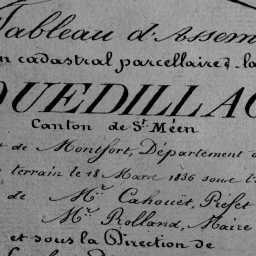 Tableau d'Assem
n cadastral parcellaire d. la
QUEDILLAC
Canton de St. Méen
t de Montfort, Département d
terrain le 18 Mars 1836 sous l
de Mr. Cahouët, Préfet
Mr. Rolland, Maire
et sous la Direction de